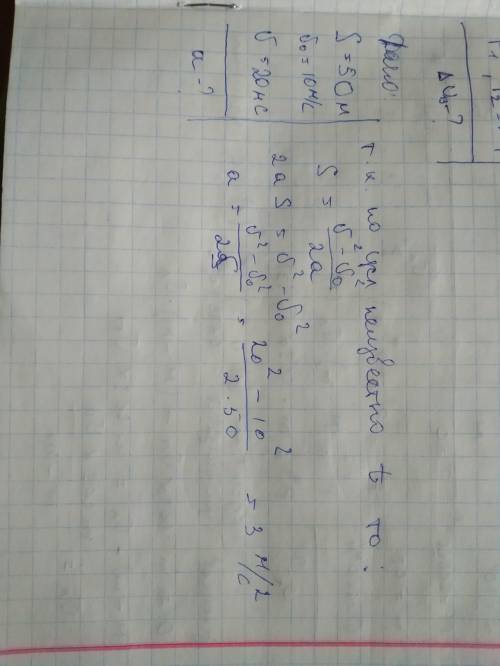 ΔU₃-?
Дано:
S = 50 м
υ₀ = 10 м/с
υ = 20 м/с
a - ?
т.к. по усл неизвестно t то:
S = υ² - υ₀² / 2a
2aS = υ² - υ₀²
a = υ² - υ₀² / 2S = 20² - 10² / 2·50 = 3 м/с²